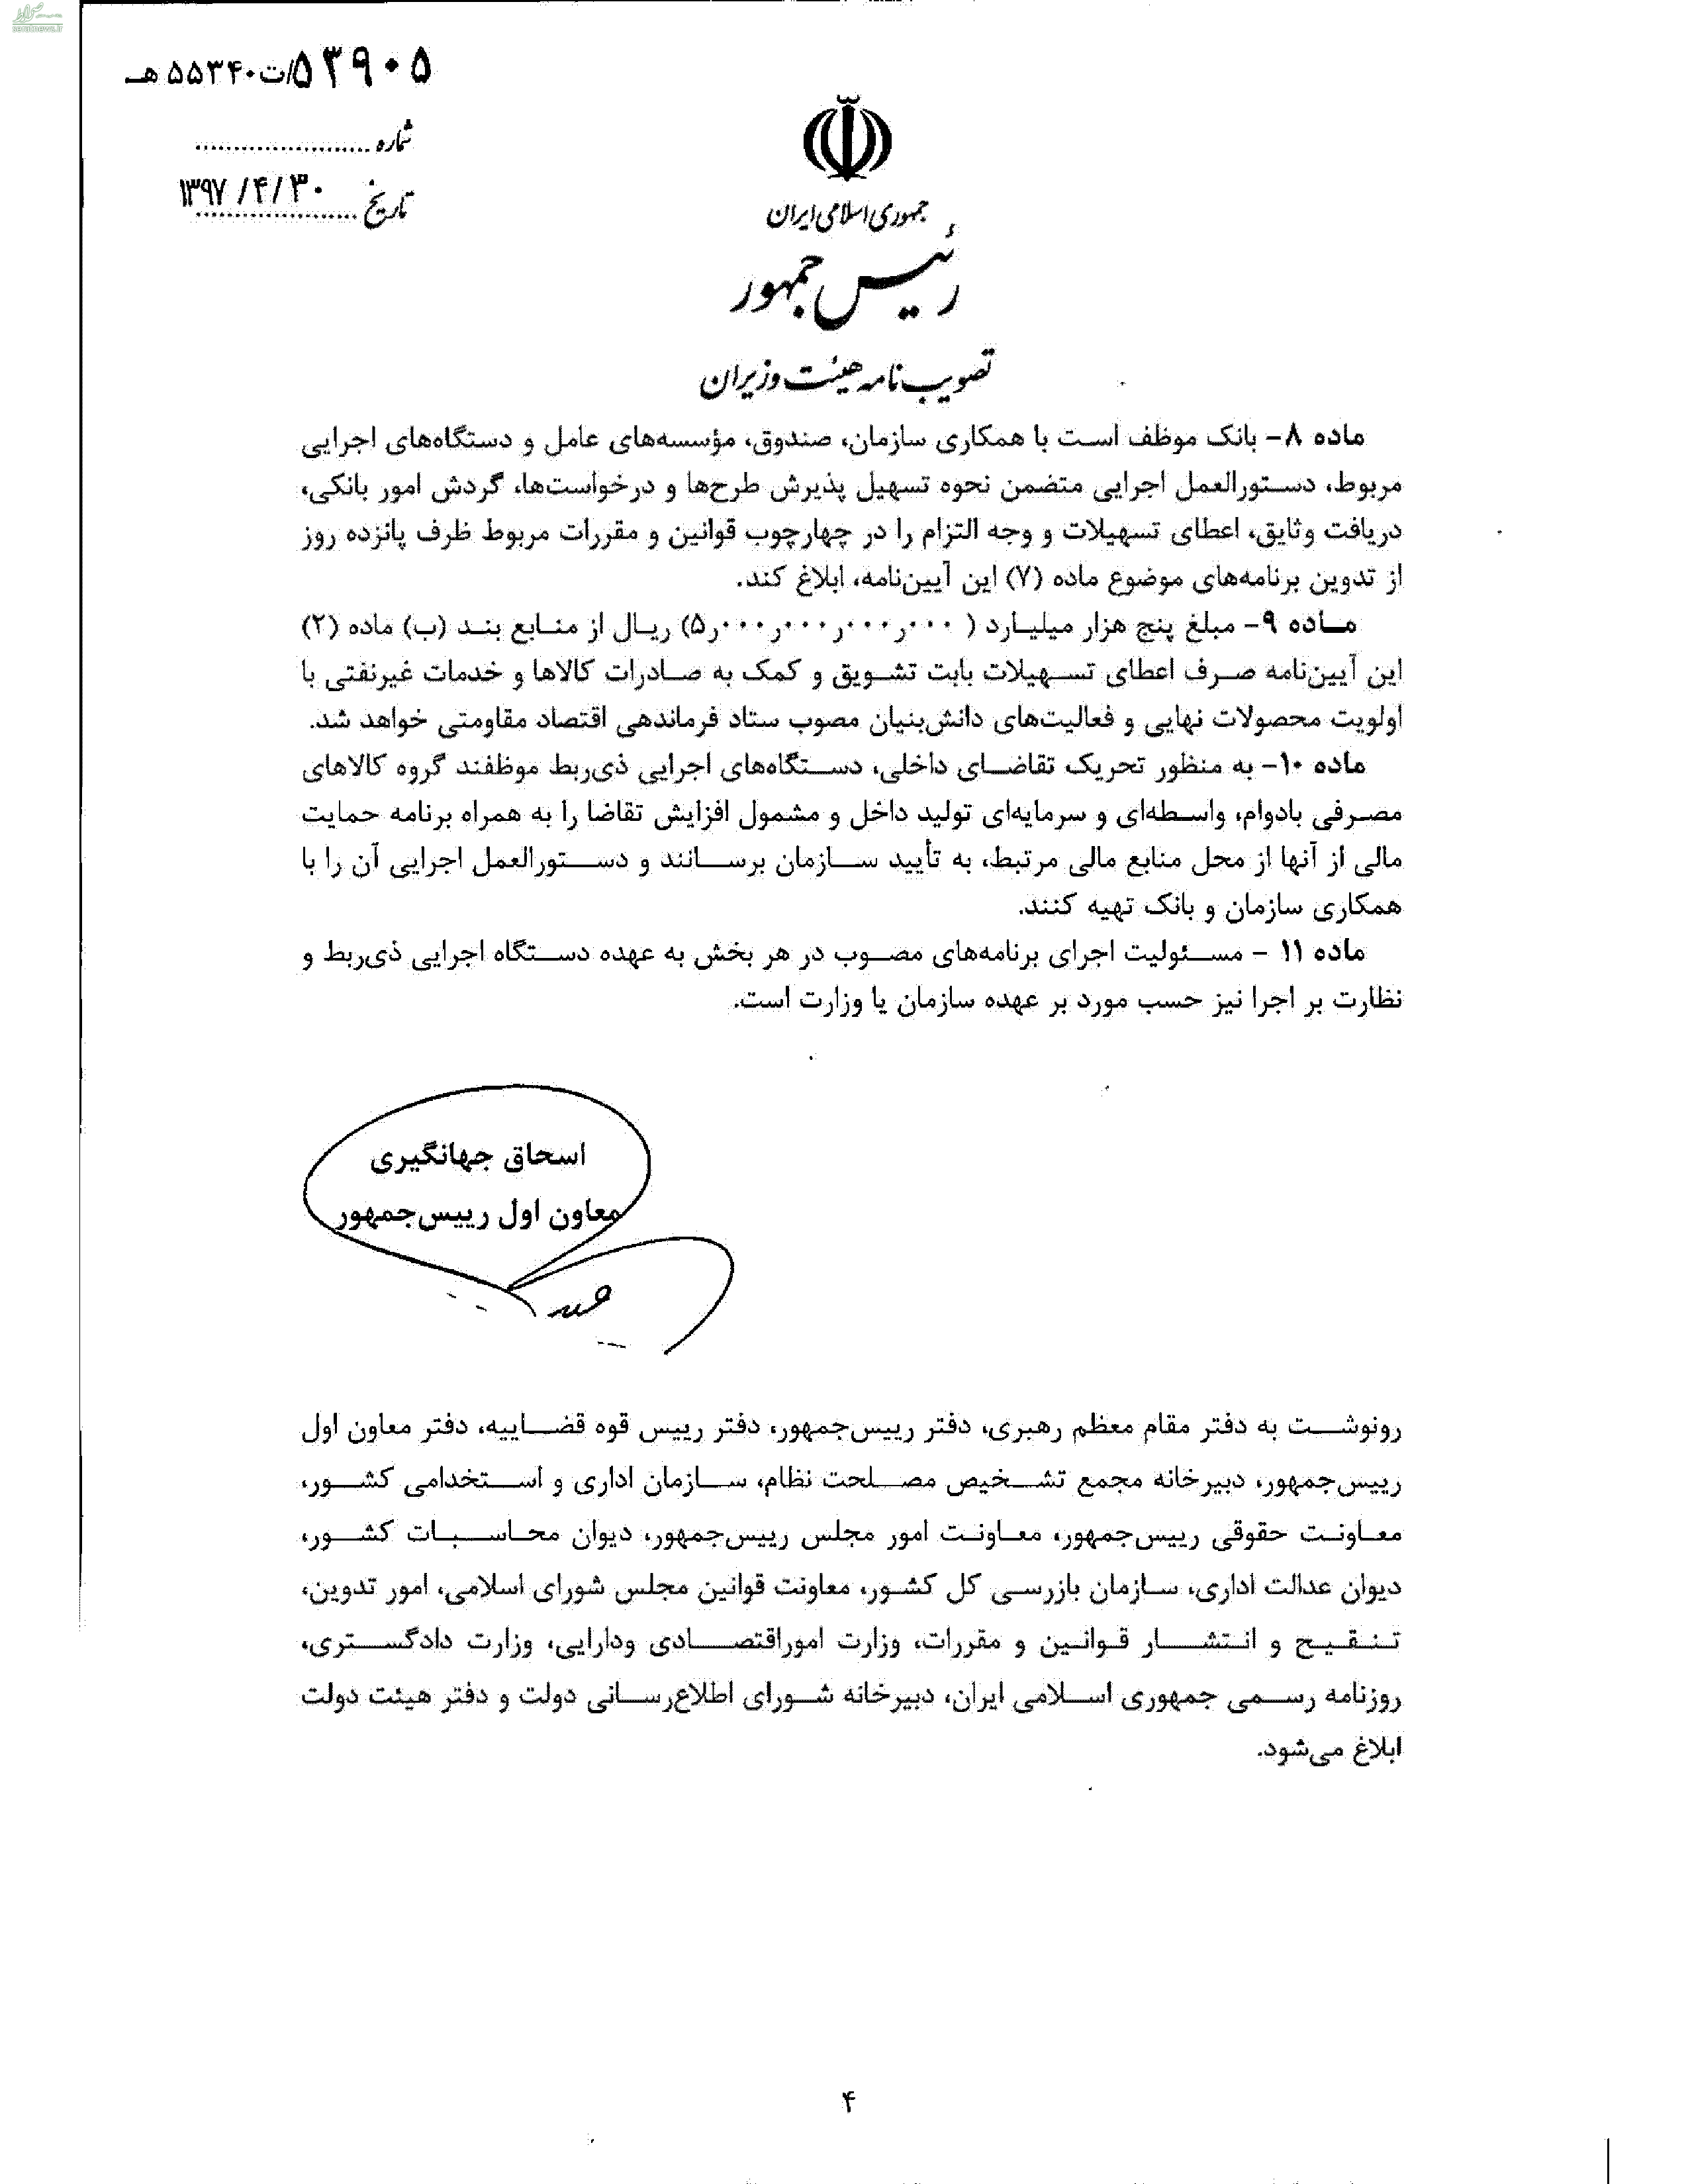 ۵۳۹۰۵/ت۵۵۳۴۰هـ
شماره
تاریخ ۱۳۹۷/۴/۳۰
جمهوری اسلامی ایران
رئیس جمهور
تصویب نامه هیئت وزیران
ماده ۸- بانک موظف است با همکاری سازمان، صندوق، مؤسسه‌های عامل و دستگاه‌های اجرایی
مربوط، دستورالعمل اجرایی متضمن نحوه تسهیل پذیرش طرح‌ها و درخواست‌ها، گردش امور بانکی،
دریافت وثایق، اعطای تسهیلات و وجه التزام را در چهارچوب قوانین و مقررات مربوط ظرف پانزده روز
از تدوین برنامه‌های موضوع ماده (۷) این آیین‌نامه، ابلاغ کند.
ماده ۹- مبلغ پنج هزار میلیارد (۵٫۰۰۰٫۰۰۰٫۰۰۰٫۰۰۰) ریال از منابع بند (ب) ماده (۲)
این آیین‌نامه صرف اعطای تسهیلات بابت تشویق و کمک به صادرات کالاها و خدمات غیرنفتی با
اولویت محصولات نهایی و فعالیت‌های دانش‌بنیان مصوب ستاد فرماندهی اقتصاد مقاومتی خواهد شد.
ماده ۱۰- به منظور تحریک تقاضای داخلی، دستگاه‌های اجرایی ذی‌ربط موظفند گروه کالاهای
مصرفی بادوام، واسطه‌ای و سرمایه‌ای تولید داخل و مشمول افزایش تقاضا را به همراه برنامه حمایت
مالی از آنها از محل منابع مالی مرتبط، به تأیید سازمان برسانند و دستورالعمل اجرایی آن را با
همکاری سازمان و بانک تهیه کنند.
ماده ۱۱ - مسئولیت اجرای برنامه‌های مصوب در هر بخش به عهده دستگاه اجرایی ذی‌ربط و
نظارت بر اجرا نیز حسب مورد بر عهده سازمان یا وزارت است.
اسحاق جهانگیری
معاون اول رییس‌جمهور
رونوشت به دفتر مقام معظم رهبری، دفتر رییس‌جمهور، دفتر رییس قوه قضاییه، دفتر معاون اول
رییس‌جمهور، دبیرخانه مجمع تشخیص مصلحت نظام، سازمان اداری و استخدامی کشور،
معاونت حقوقی رییس‌جمهور، معاونت امور مجلس رییس‌جمهور، دیوان محاسبات کشور،
دیوان عدالت اداری، سازمان بازرسی کل کشور، معاونت قوانین مجلس شورای اسلامی، امور تدوین،
تنقیح و انتشار قوانین و مقررات، وزارت اموراقتصادی ودارایی، وزارت دادگستری،
روزنامه رسمی جمهوری اسلامی ایران، دبیرخانه شورای اطلاع‌رسانی دولت و دفتر هیئت دولت
ابلاغ می‌شود.
۴